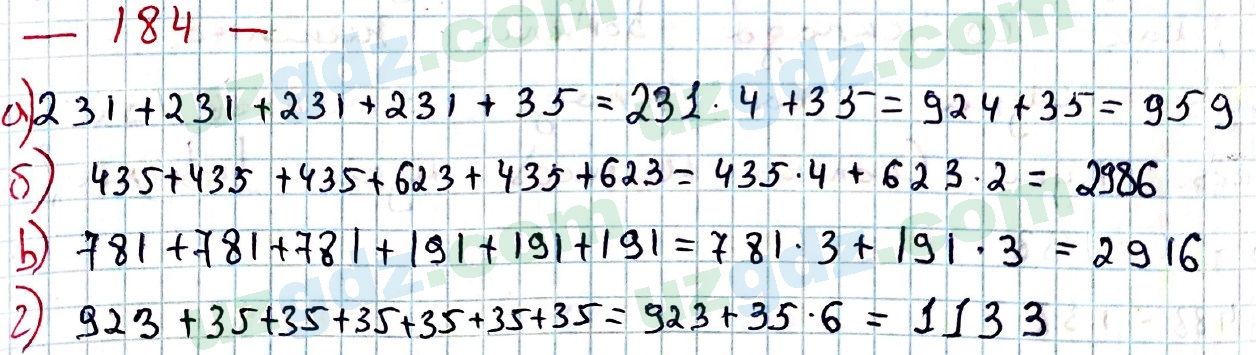 — 184 —
а) 231 + 231 + 231 + 231 + 35 = 231 · 4 + 35 = 924 + 35 = 959
б) 435 + 435 + 435 + 623 + 435 + 623 = 435 · 4 + 623 · 2 = 2986
в) 781 + 781 + 781 + 191 + 191 + 191 = 781 · 3 + 191 · 3 = 2916
г) 923 + 35 + 35 + 35 + 35 + 35 + 35 = 923 + 35 · 6 = 1133
uzgdz.com
uzgdz.com
uzgdz.com
uzgdz.com